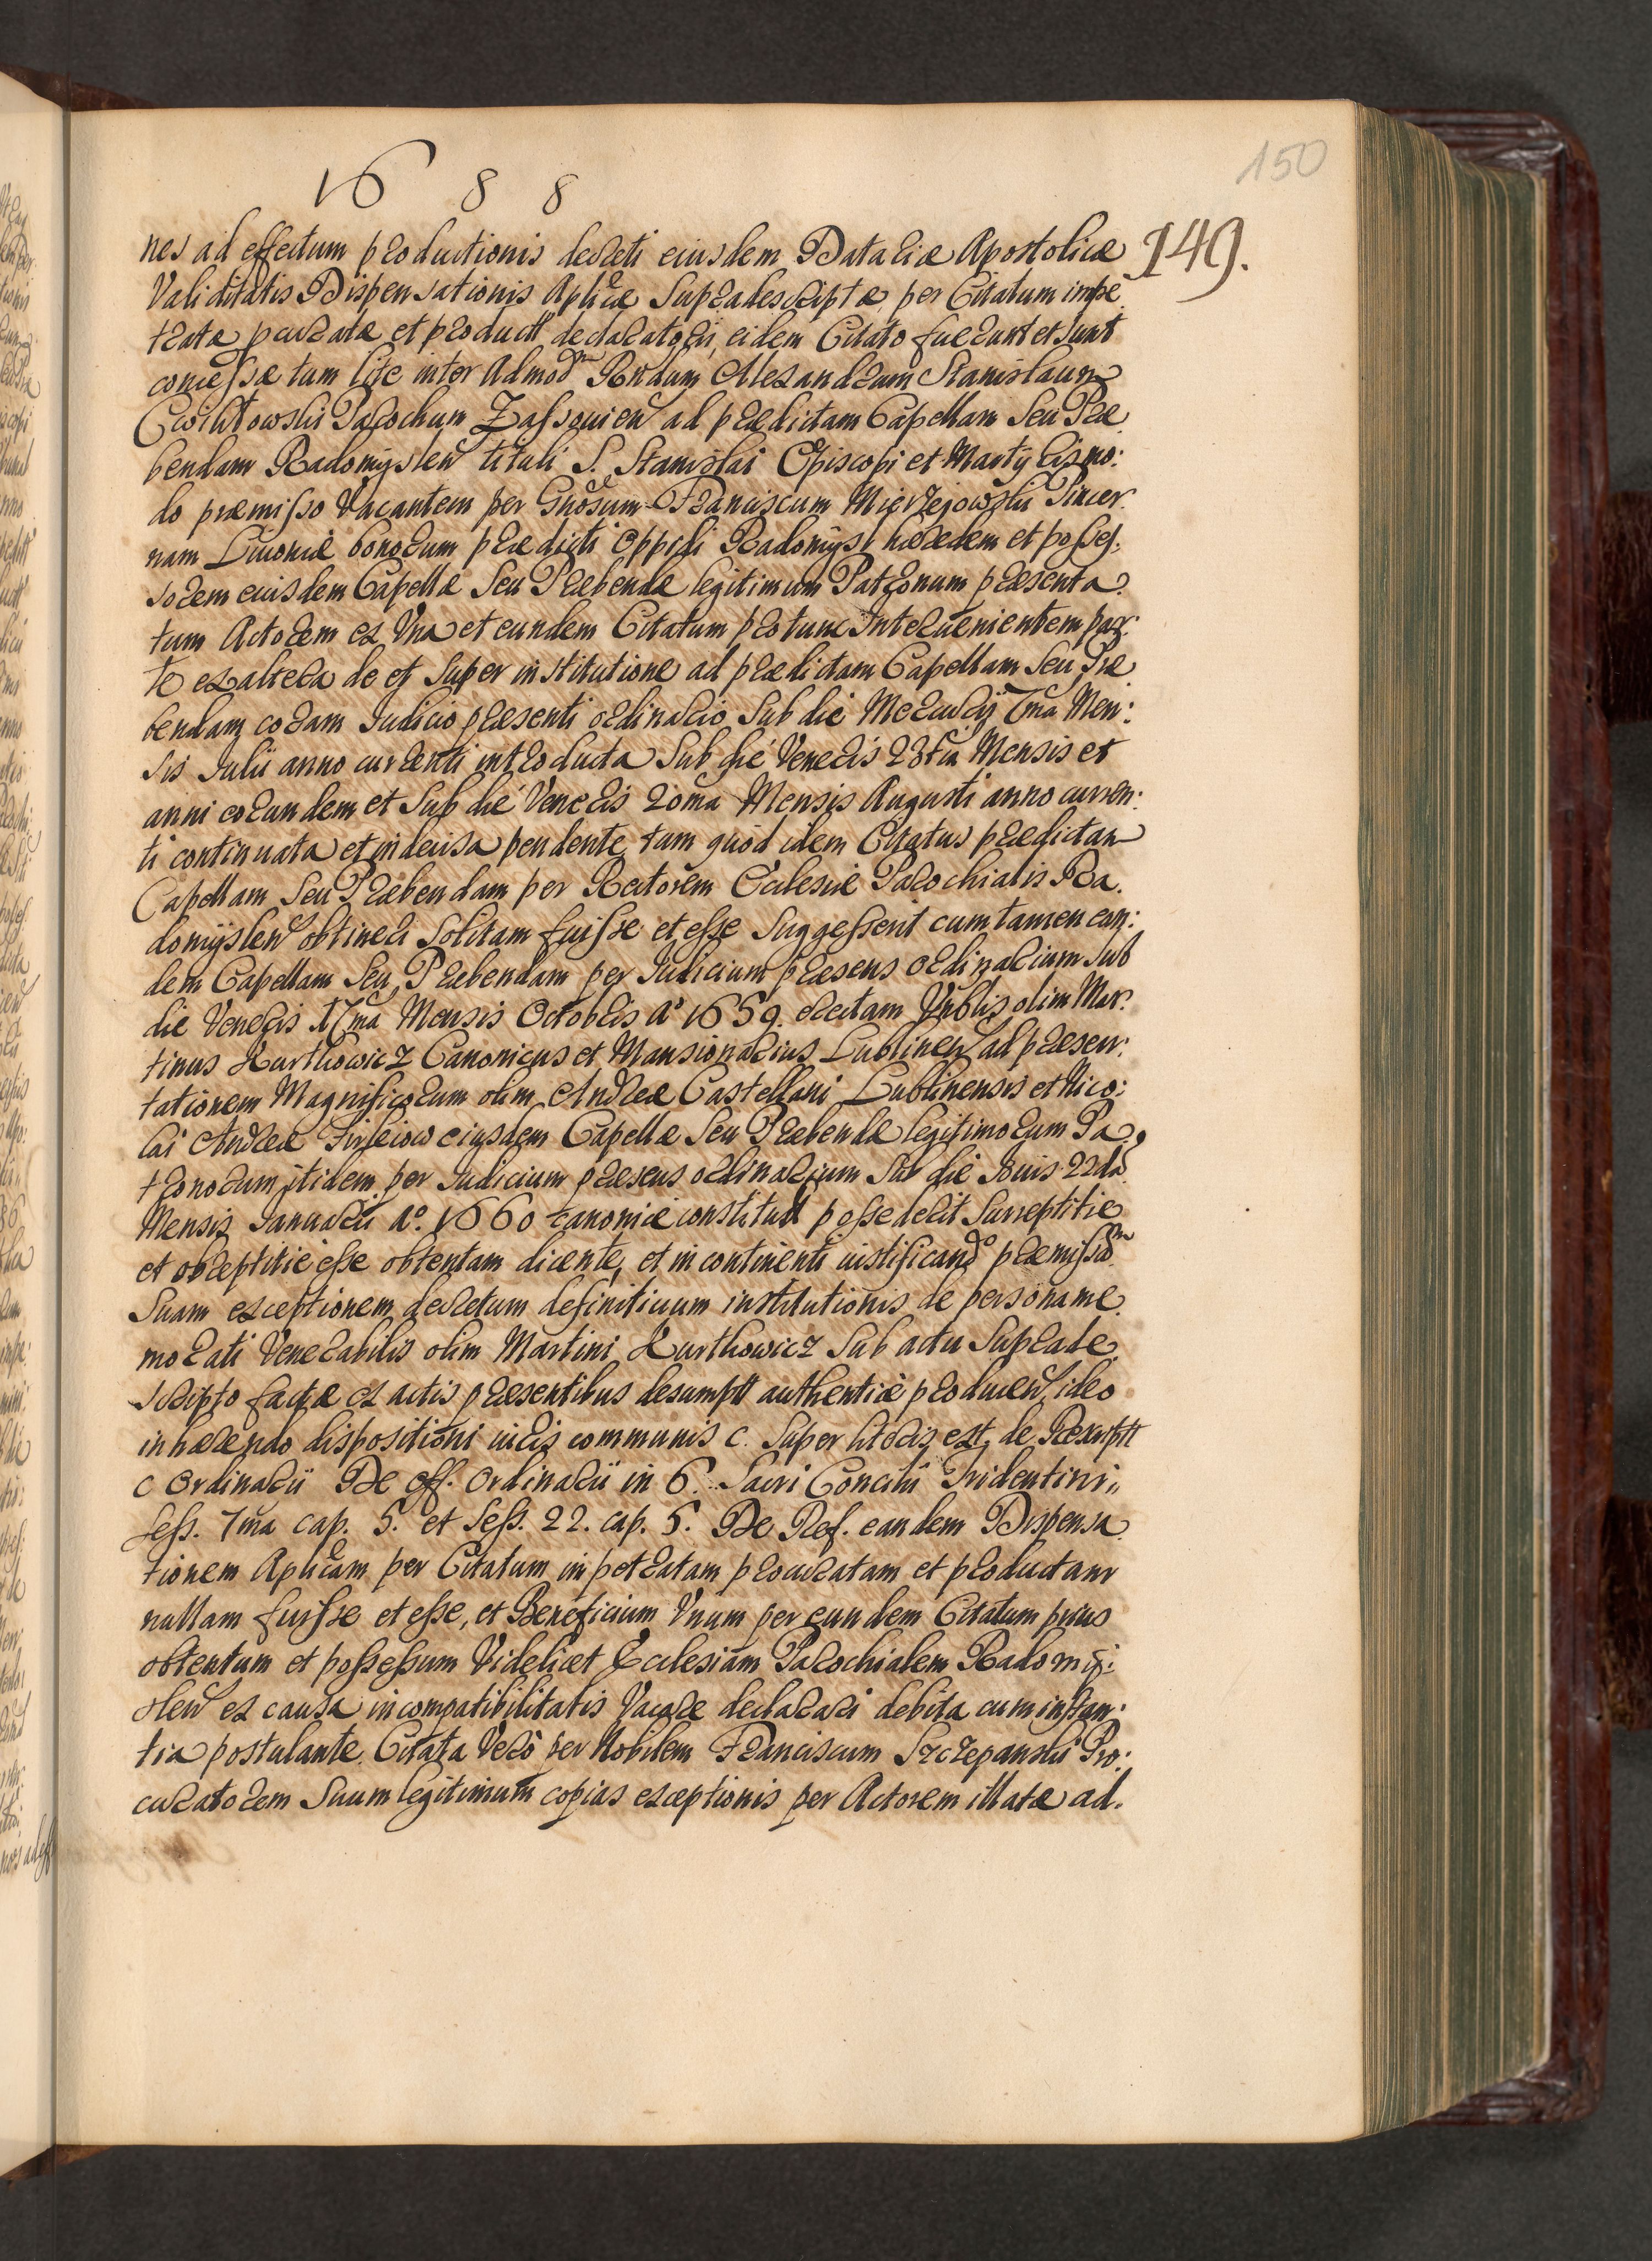 150
1688
149.
nes ad effectum productionis decreti eiusdem Datariæ Apostolicæ
Validitatis Dispensationis Aplicæ Supradescriptæ per Citatum impe
tratæ procuratæ et product declaratorii, eidem Citato fuerunt et sunt
concessæ tum lite inter Admod Rndum Alexandrum Stanislaum
Parochum Zassovien ad prædictam Capellam Seu Præ
bendam Radomyslen tituli S. Stanislai Episcopi et Martyris mo:
do præmisso Vacantem per Gnosum Franciscum Mierzejowski Pincer
nam Livoniæ bonorum prædicti Oppidi Radomysl hæredem et posses:
sorem eiusdem Capellæ Seu Præbendæ legitimum Patronum præsenta
tum Actorem ex Una et eundem Citatum protunc Intervenientem par
te ex altera de et super institutione ad prædictam Capellam Seu Præ
bendam coram Iudicio præsenti ordinario Sub die Mercurij 7ma Men:
sis Iulii anno currenti introducta Sub die Veneris 23tia Mensis et
anni eorundem et Sub die Veneris 20ma Mensis Augusti anno curren:
ti continuata et indecisa pendente, tum quod idem Citatus prædictam
Capellam Seu Præbendam per Rectorem Ecclesiæ Parochialis Ra
domÿslen obtineri Solitam fuisse et esse Suggesserit cum tamen ean:
dem Capellam Seu Præbendam per Iudicium præsens ordinarium Sub
die Veneris 17ma Mensis Octobris A° 1659. erectam Vnblis olim Mar
tinus Kurthowicz Canonicus et Mansionarius Lublinen ad præsen:
tationem Magnificorum olim Andreæ Castellani Lublinensis et Nico:
lai Andreæ Firleiow eiusdem Capellæ Seu Præbendæ legitimorum Pa
tronorum itidem per Iudicium præsens ordinarium Sub die Iovis 22da
Mensis Ianuarii A°. 1660 canonice constitut possederit Surreptitie
et obreptitie esse obtentam dicente, et in continenti iustificando præmissam
Suam exceptionem decretum definitivum institutionis de persona me
morati Venerabilis olim Martini Kurthowicz Sub actu Suprade
scripto factæ ex actis præsentibus desumptt authentice producen, ideo
inhærendo dispositioni iuris communis c. Super litteris ext. de Rescriptt
c Ordinarii De off. Ordinarii in 6. Sacri Concilii Tridentini
Sess. 7ma cap. 5. et Sess. 22. cap. 5. De Ref. eandem Dispensa
tionem Aplicam per Citatum impetratam procuratam et productam
nullam fuisse et esse, et Beneficium Vnum per eundem Citatum prius
obtentum et possessum Videlicet Ecclesiam Parochialem Radomÿ:
slen ex causa incompatibilitatis Vacare declarari debita cum instan:
tia postulante. Citata Vero per Nobilem Franciscum Szczepanski Pro:
curatorem Suum legitimum copias exceptionis per Actorem illatæ ad.